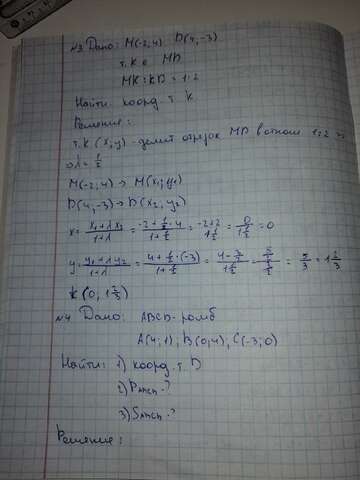 №3 Дано: M(-2,4) D(4,-3)
т. K ∈ MD
MK:KD = 1:2
Найти коорд. т. K
Решение:
т. K (x,y) - делит отрезок MD в отнош 1:2 =>
λ = 1/2
M(-2,4) → M(x₁;y₁)
D(4,-3) → D(x₂,y₂)
x = (x₁+λx₂)/(1+λ) = (-2+1/2·4)/(1+1/2) = (-2+2)/(1 1/2) = 0/(1 1/2) = 0
y = (y₁+λy₂)/(1+λ) = (4+1/2·(-3))/(1+1/2) = (4-3/2)/(1 1/2) = (5/2)/(3/2) = 5/3 = 1 2/3
K (0, 1 2/3)
№4 Дано: ABCD - ромб
A(4;1), B(0;4), C(-3;0)
Найти: 1) коорд. т. D
2) P ABCD - ?
3) S ABCD - ?
Решение: